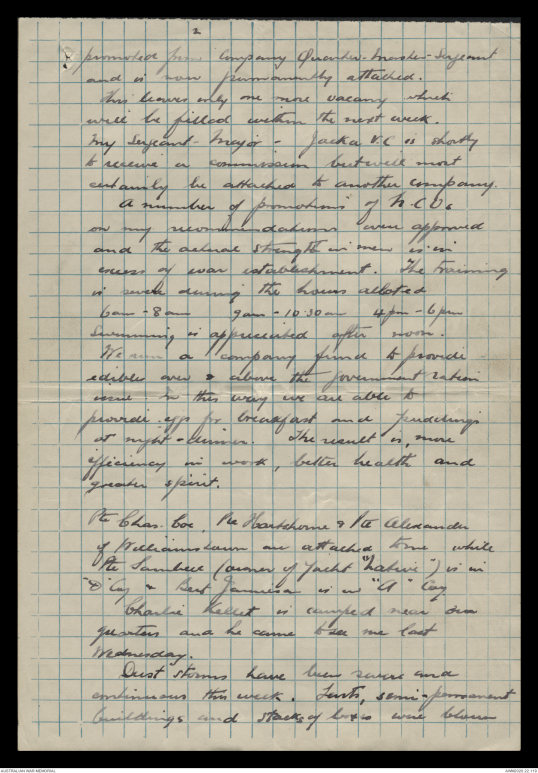 2
promoted from Company Quarter-Master-Sergeant
and is now permanently attached.
This leaves only one more vacancy which
will be filled within the next week.
My Sergeant-Major - Jacka V.C is shortly
to receive a commission but will most
certainly be attached to another company.
A number of promotions of N.C.Os
on my recommendations were approved
and the actual strength in men is in
excess of war establishment. The training
is severe during the hours alloted
6am - 8am 9am - 10.30am 4pm - 6pm
Swimming is appreciated after noon.
We run a company fund to provide
edibles over & above the government ration
issue. In this way we are able to
provide eggs for breakfast and puddings
at night-dinner. The result is, more
efficiency in work, better health and
greater spirit.
Pte Chas. Coe, Pte Hartshorne & Pte Alexander
of Williamstown are attached to me while
Pte (owner of Yacht "Native") is in
"D" Coy & Bert Jamieson is in "A" Coy
Charlie Kellet is camped near our
quarters and he came to see me last
Wednesday.
Dust storms have been severe and
continuous this week. Tents, semi-permanent
buildings and stacks of boxes were blown
AUSTRALIAN WAR MEMORIAL